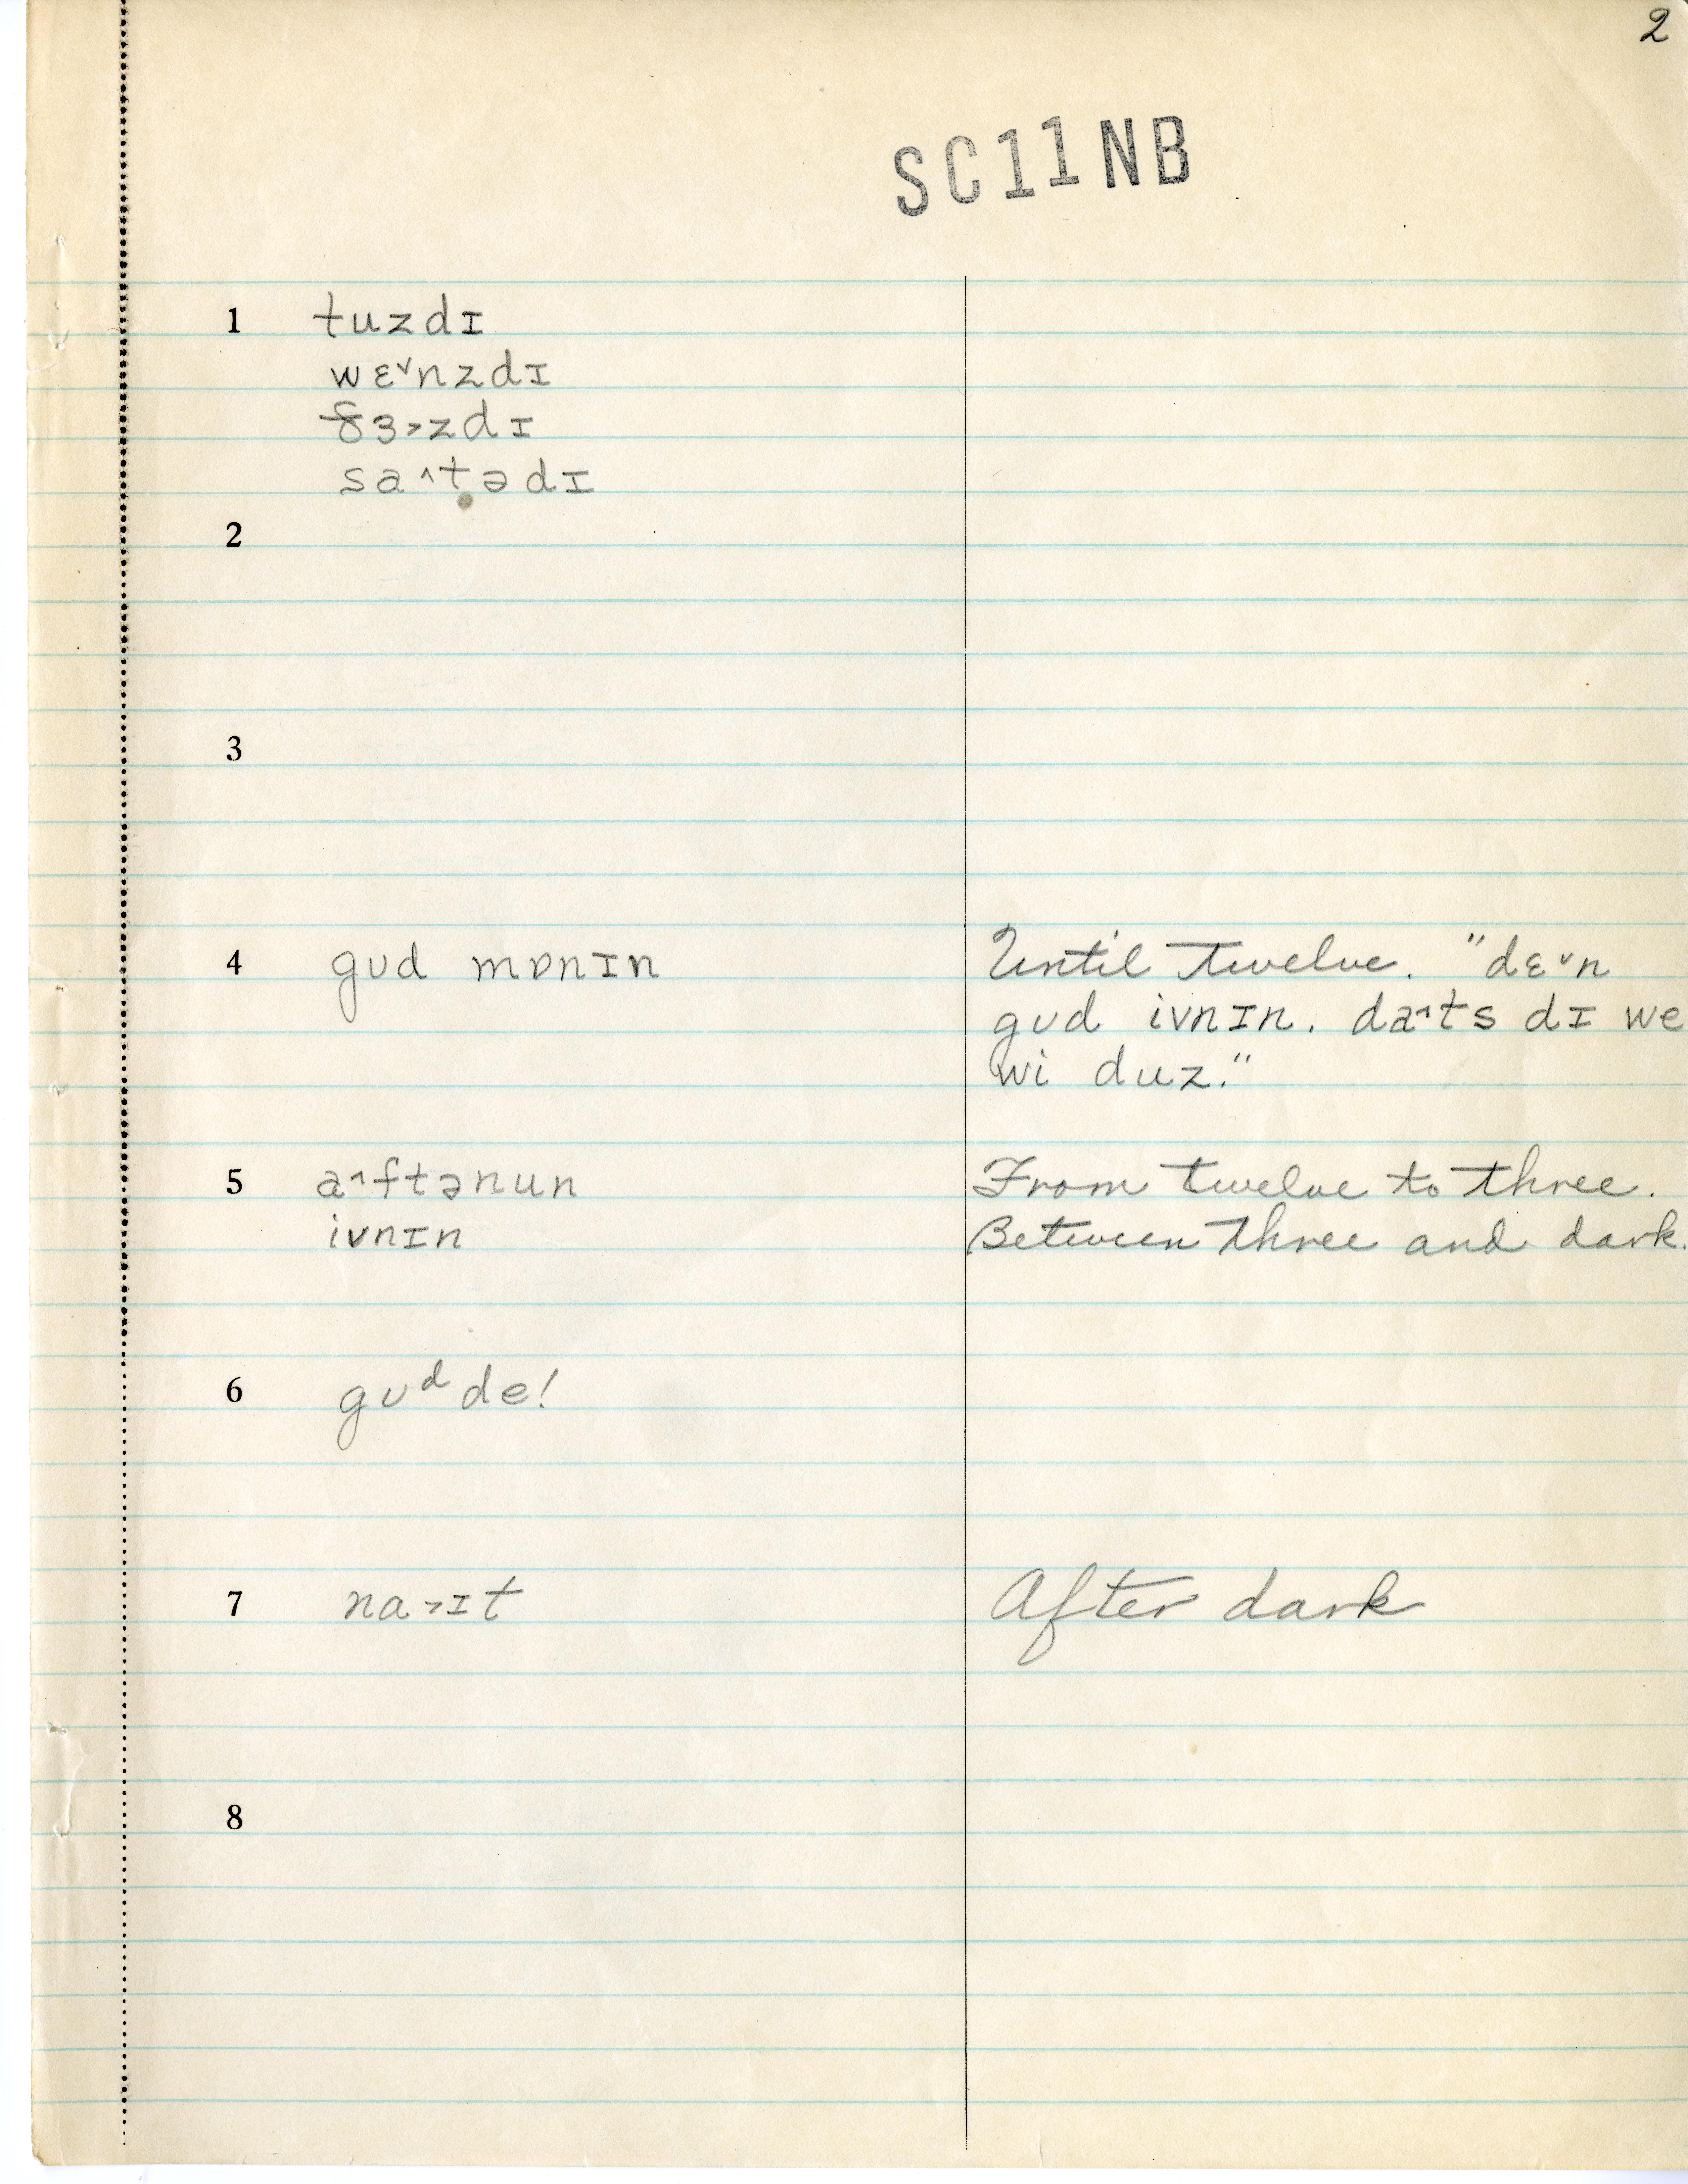 2
SC11NB
1 tuzdɪ
wɛ˅nzdɪ
ɜ˃zdɪ
sa˄tədɪ
2
3
4 gʊd mɒnɪn Until twelve. "dɛ˅n
gʊd ivnɪn. da˄ts dɪ we
wi duz."
5 a˄ftənun From twelve to three.
ivnɪn Between three and dark.
6 gʊᵈde!
7 na˃ɪt After dark
8